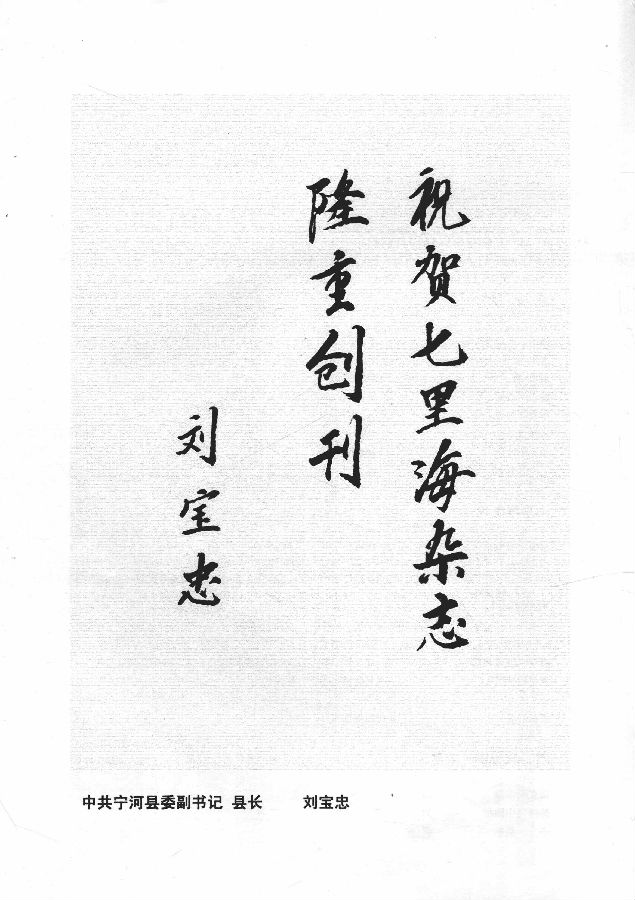 祝贺七里海杂志
隆重创刊
刘宝忠
中共宁河县委副书记 县长 刘宝忠